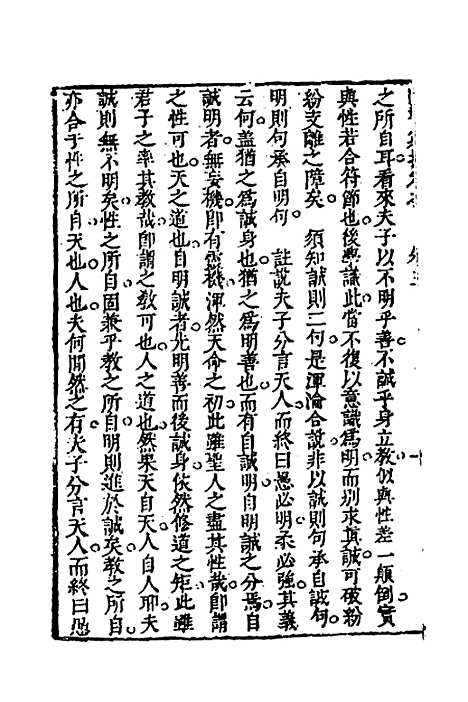 之所自耳看來夫子以不明乎善不誠乎身立教似與性差一顛倒實
與性若合符節也後與議此當不復以意識爲明而別求真誠可破紛
紛支離之障矣　須知誠則二句是渾淪合說非以誠則句承自誠句
明則句承自明句　註說夫子分言天人而終曰愚必明柔必強其義
云何蓋猶之爲誠身也猶之爲明善也而有自誠明自明誠之分焉自
誠明者無妄機卽有靈機渾然天命之初此雖聖人之盡其性哉卽謂
之性可也天之道也自明誠者先明善而後誠身依然修道之矩此雖
君子之率其教哉卽謂之教可也人之道也然果天自天人自人耶夫
誠則無不明矣性之所自固兼乎教之所自明則進於誠矣教之所自
亦合于性之所自天也人也夫何間然之有夫子分言天人而終曰愚